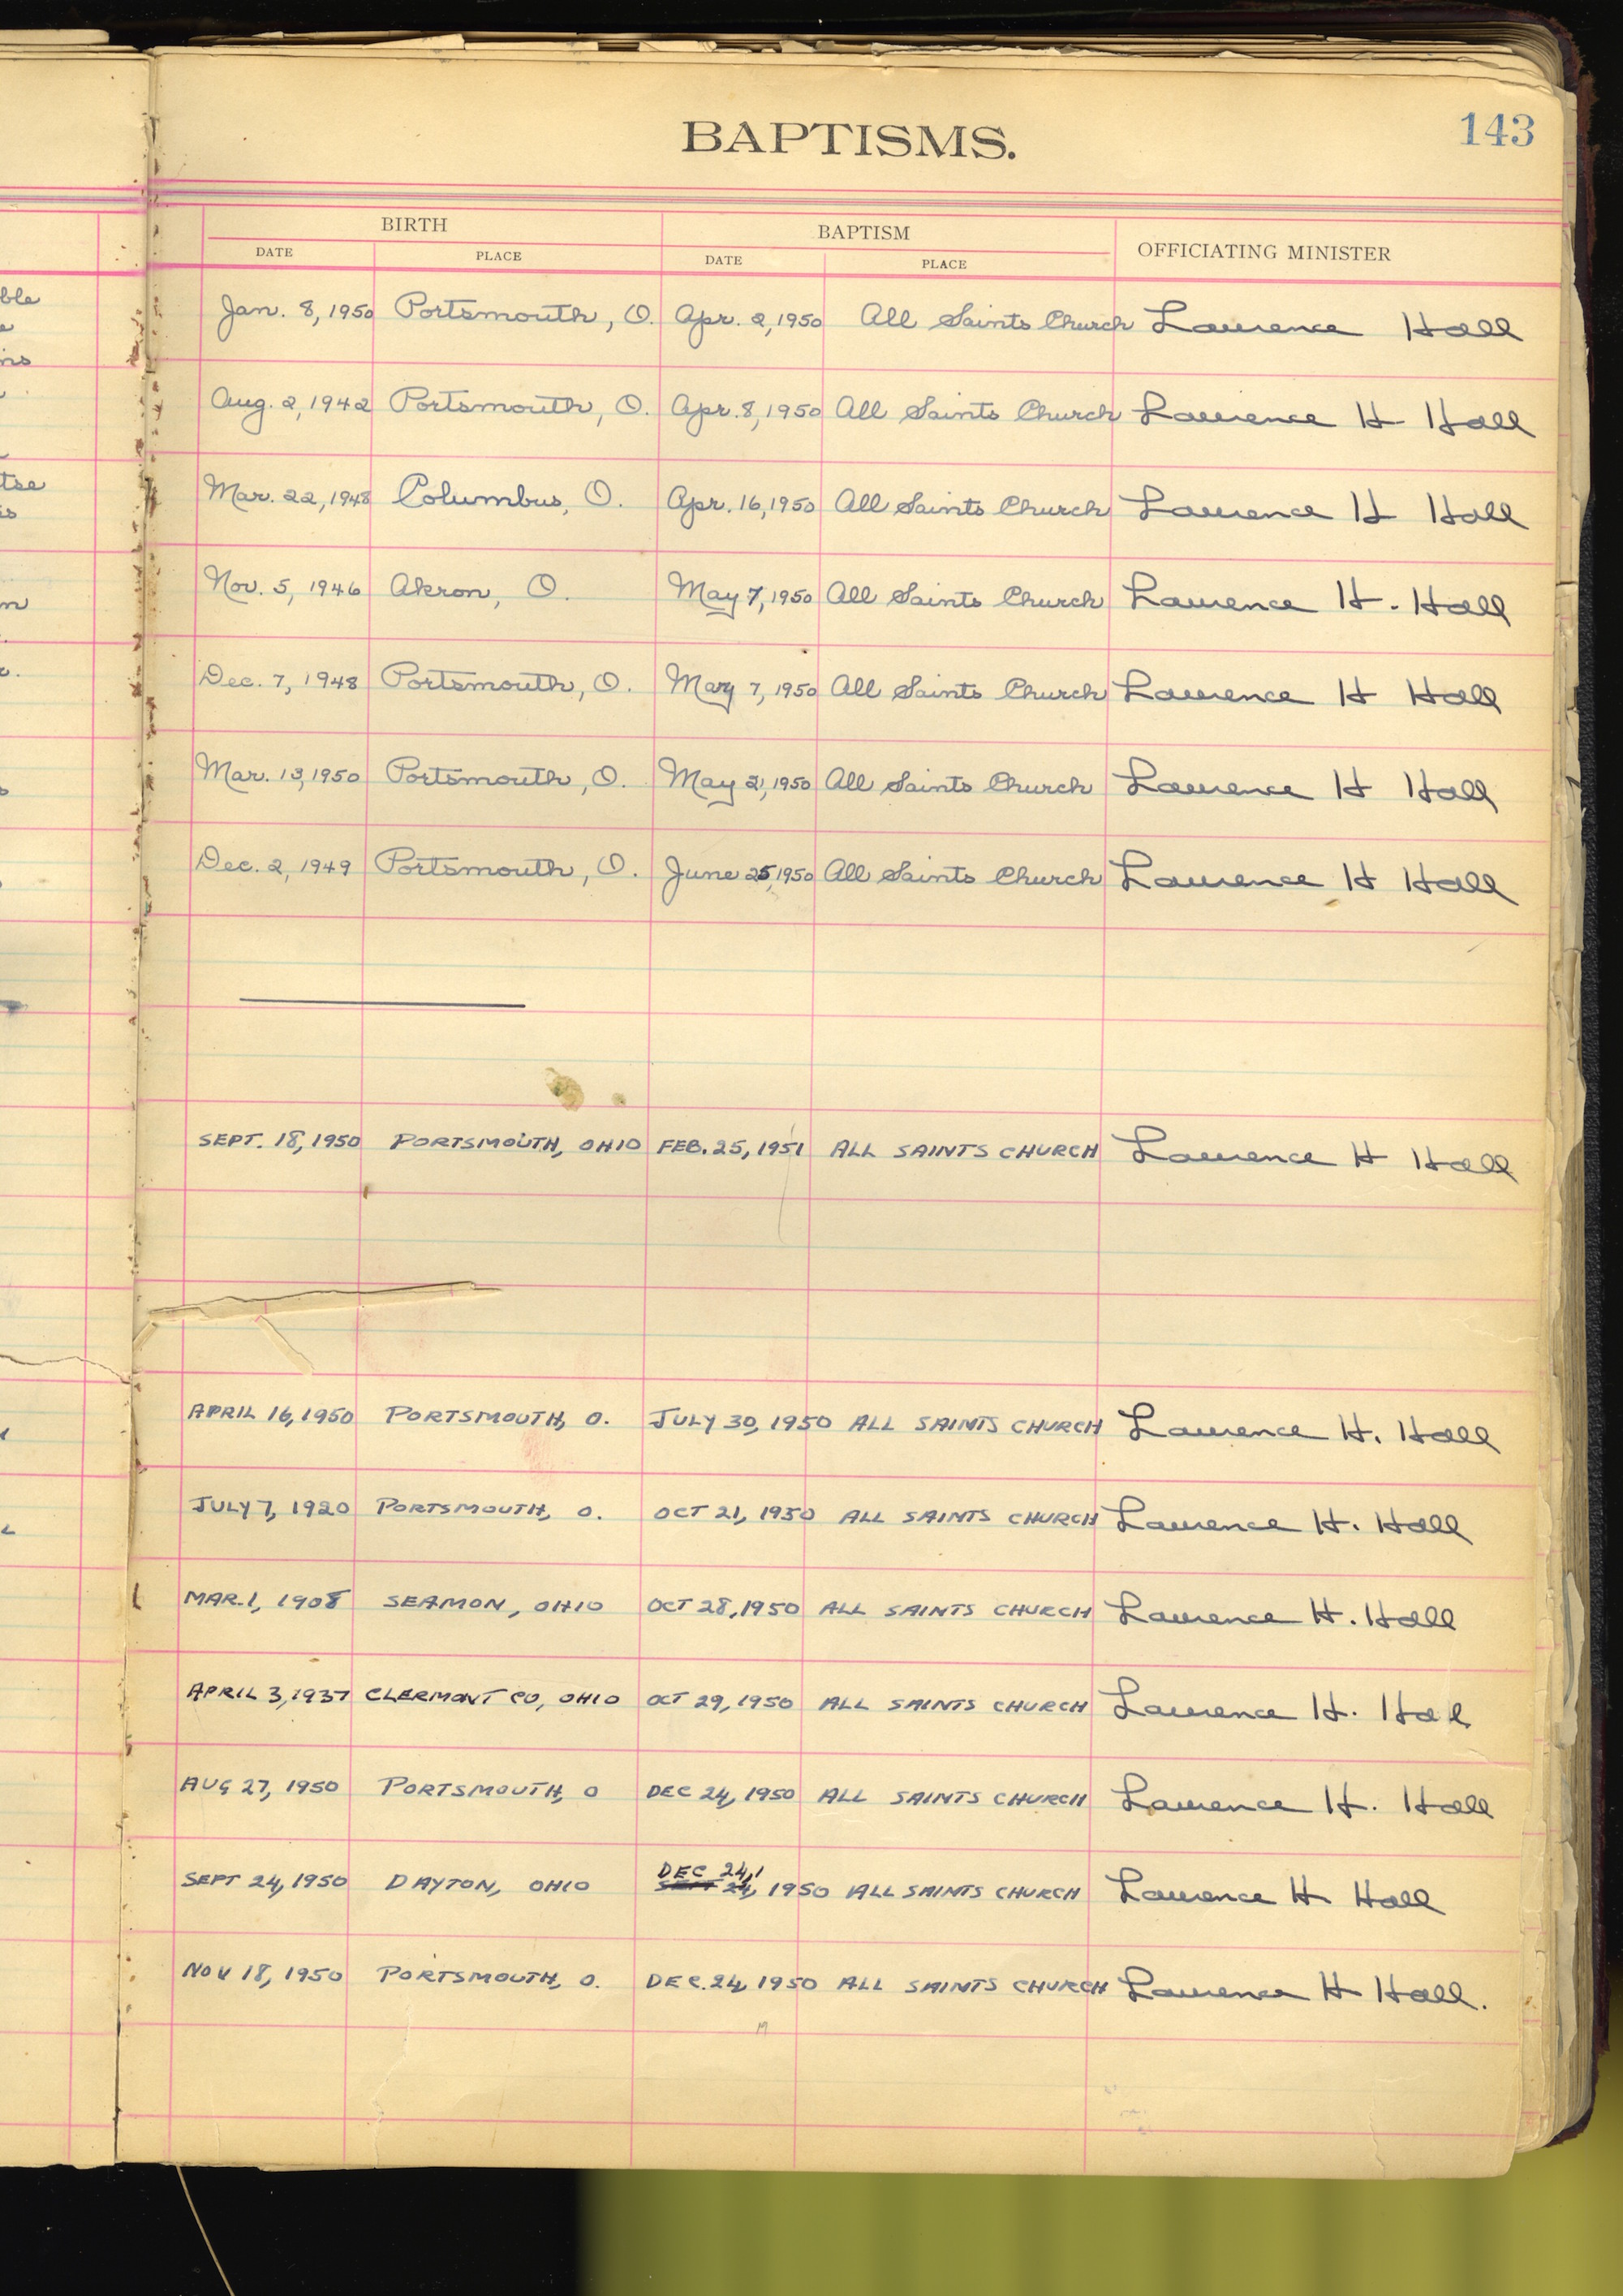 BAPTISMS.
143
BIRTH
BAPTISM
OFFICIATING MINISTER
DATE PLACE DATE PLACE
Jan. 8, 1950 Portsmouth, O. Apr. 2, 1950 All Saints Church Lawrence Hall
Aug. 2, 1942 Portsmouth, O. Apr. 8, 1950 All Saints Church Lawrence H Hall
Mar. 22, 1948 Columbus, O. Apr. 16, 1950 All Saints Church Lawrence H Hall
Nov. 5, 1946 Akron, O. May 7, 1950 All Saints Church Lawrence H. Hall
Dec. 7, 1948 Portsmouth, O. May 7, 1950 All Saints Church Lawrence H Hall
Mar. 13, 1950 Portsmouth, O. May 21, 1950 All Saints Church Lawrence H Hall
Dec. 2, 1949 Portsmouth, O. June 25, 1950 All Saints Church Lawrence H Hall
SEPT. 18, 1950 PORTSMOUTH, OHIO FEB. 25, 1951 ALL SAINTS CHURCH Lawrence H Hall
APRIL 16, 1950 PORTSMOUTH, O. JULY 30, 1950 ALL SAINTS CHURCH Lawrence H. Hall
JULY 7, 1920 PORTSMOUTH, O. OCT 21, 1950 ALL SAINTS CHURCH Lawrence H. Hall
MAR. 1, 1908 SEAMON, OHIO OCT 28, 1950 ALL SAINTS CHURCH Lawrence H. Hall
APRIL 3, 1937 CLERMONT CO, OHIO OCT 29, 1950 ALL SAINTS CHURCH Lawrence H. Hall
AUG 27, 1950 PORTSMOUTH, O DEC 24, 1950 ALL SAINTS CHURCH Lawrence H. Hall
DEC 24,
SEPT 24, 1950 DAYTON, OHIO SEPT 24, 1950 ALL SAINTS CHURCH Lawrence H Hall
NOV 18, 1950 PORTSMOUTH, O. DEC. 24, 1950 ALL SAINTS CHURCH Lawrence H Hall.